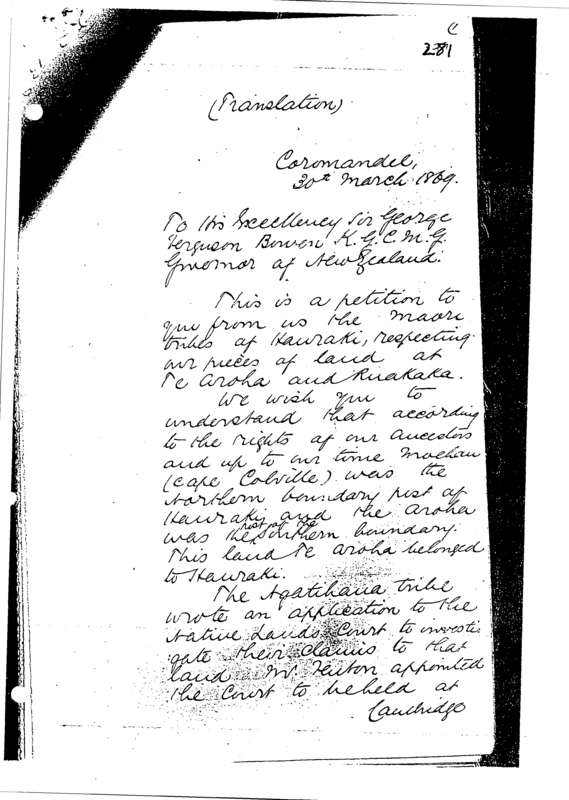 C
281
(Translation)
Coromandel,
30th March 1869.
To His Excellency Sir George
Ferguson Bowen K.G.C.M.G.
Governor of New Zealand.
This is a petition to
you from us the Maori
tribes of Hauraki, respecting
our pieces of land at
Te Aroha and Ruakaka.
We wish you to
understand that according
to the rights of our ancestors
and up to our time Moehau
(Cape Colville) was the
Northern boundary post of
Hauraki and the Aroha
was the post of the Southern boundary.
This land Te Aroha belonged
to Hauraki.
The Ngatihaua tribe
wrote an application to the
Native Lands Court to investi
gate their claims to that
land Mr Fenton appointed
the Court to be held at
Cambridge